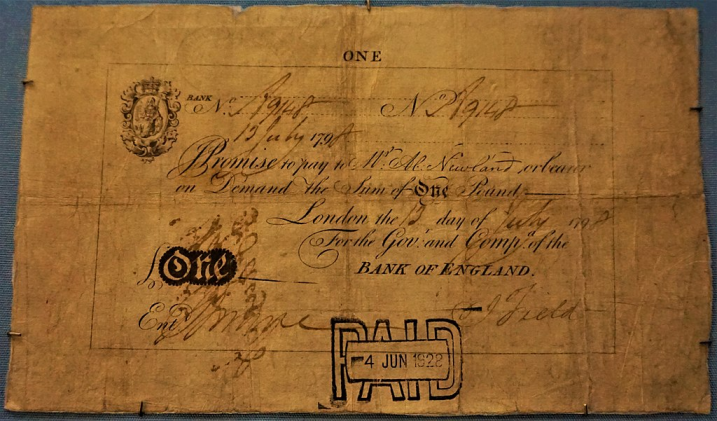 ONE
BANK No. No.
13 July 1798
I Promise to pay to Mr. Ab. Newland, or bearer
on Demand the Sum of One Pound
London the 13 day of July 1798
For the Gov.r and Comp.a of the
£One BANK OF ENGLAND.
Ent.d J Field
PAID
4 JUN 1928